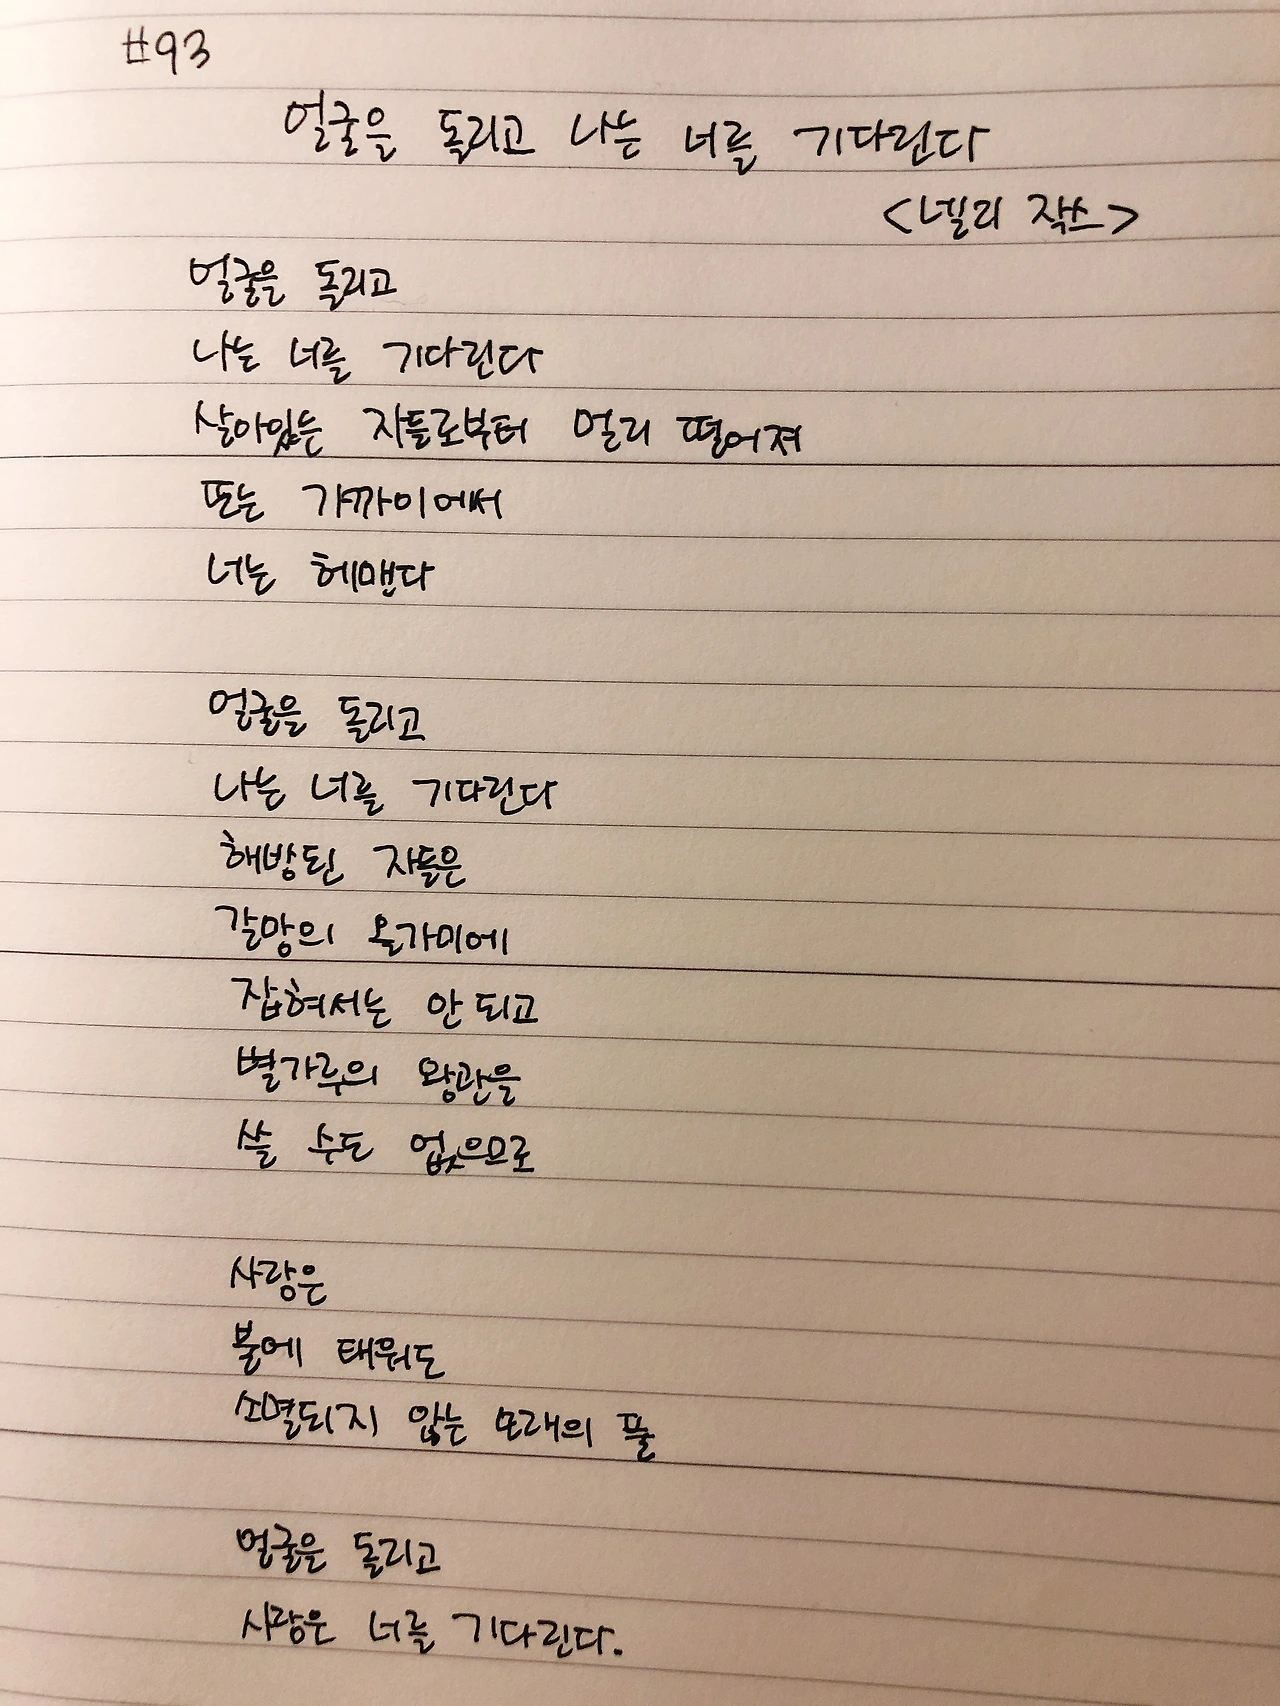 #93
얼굴을 돌리고 나는 너를 기다린다
<넬리 작스>
얼굴을 돌리고
나는 너를 기다린다
살아있는 자들로부터 멀리 떨어져
또는 가까이에서
너는 헤맨다
얼굴을 돌리고
나는 너를 기다린다
해방된 자들은
갈망의 올가미에
잡혀서는 안 되고
별가루의 왕관을
쓸 수도 없으므로
사랑은
불에 태워도
소멸되지 않는 모래의 풀
얼굴을 돌리고
사랑은 너를 기다린다.